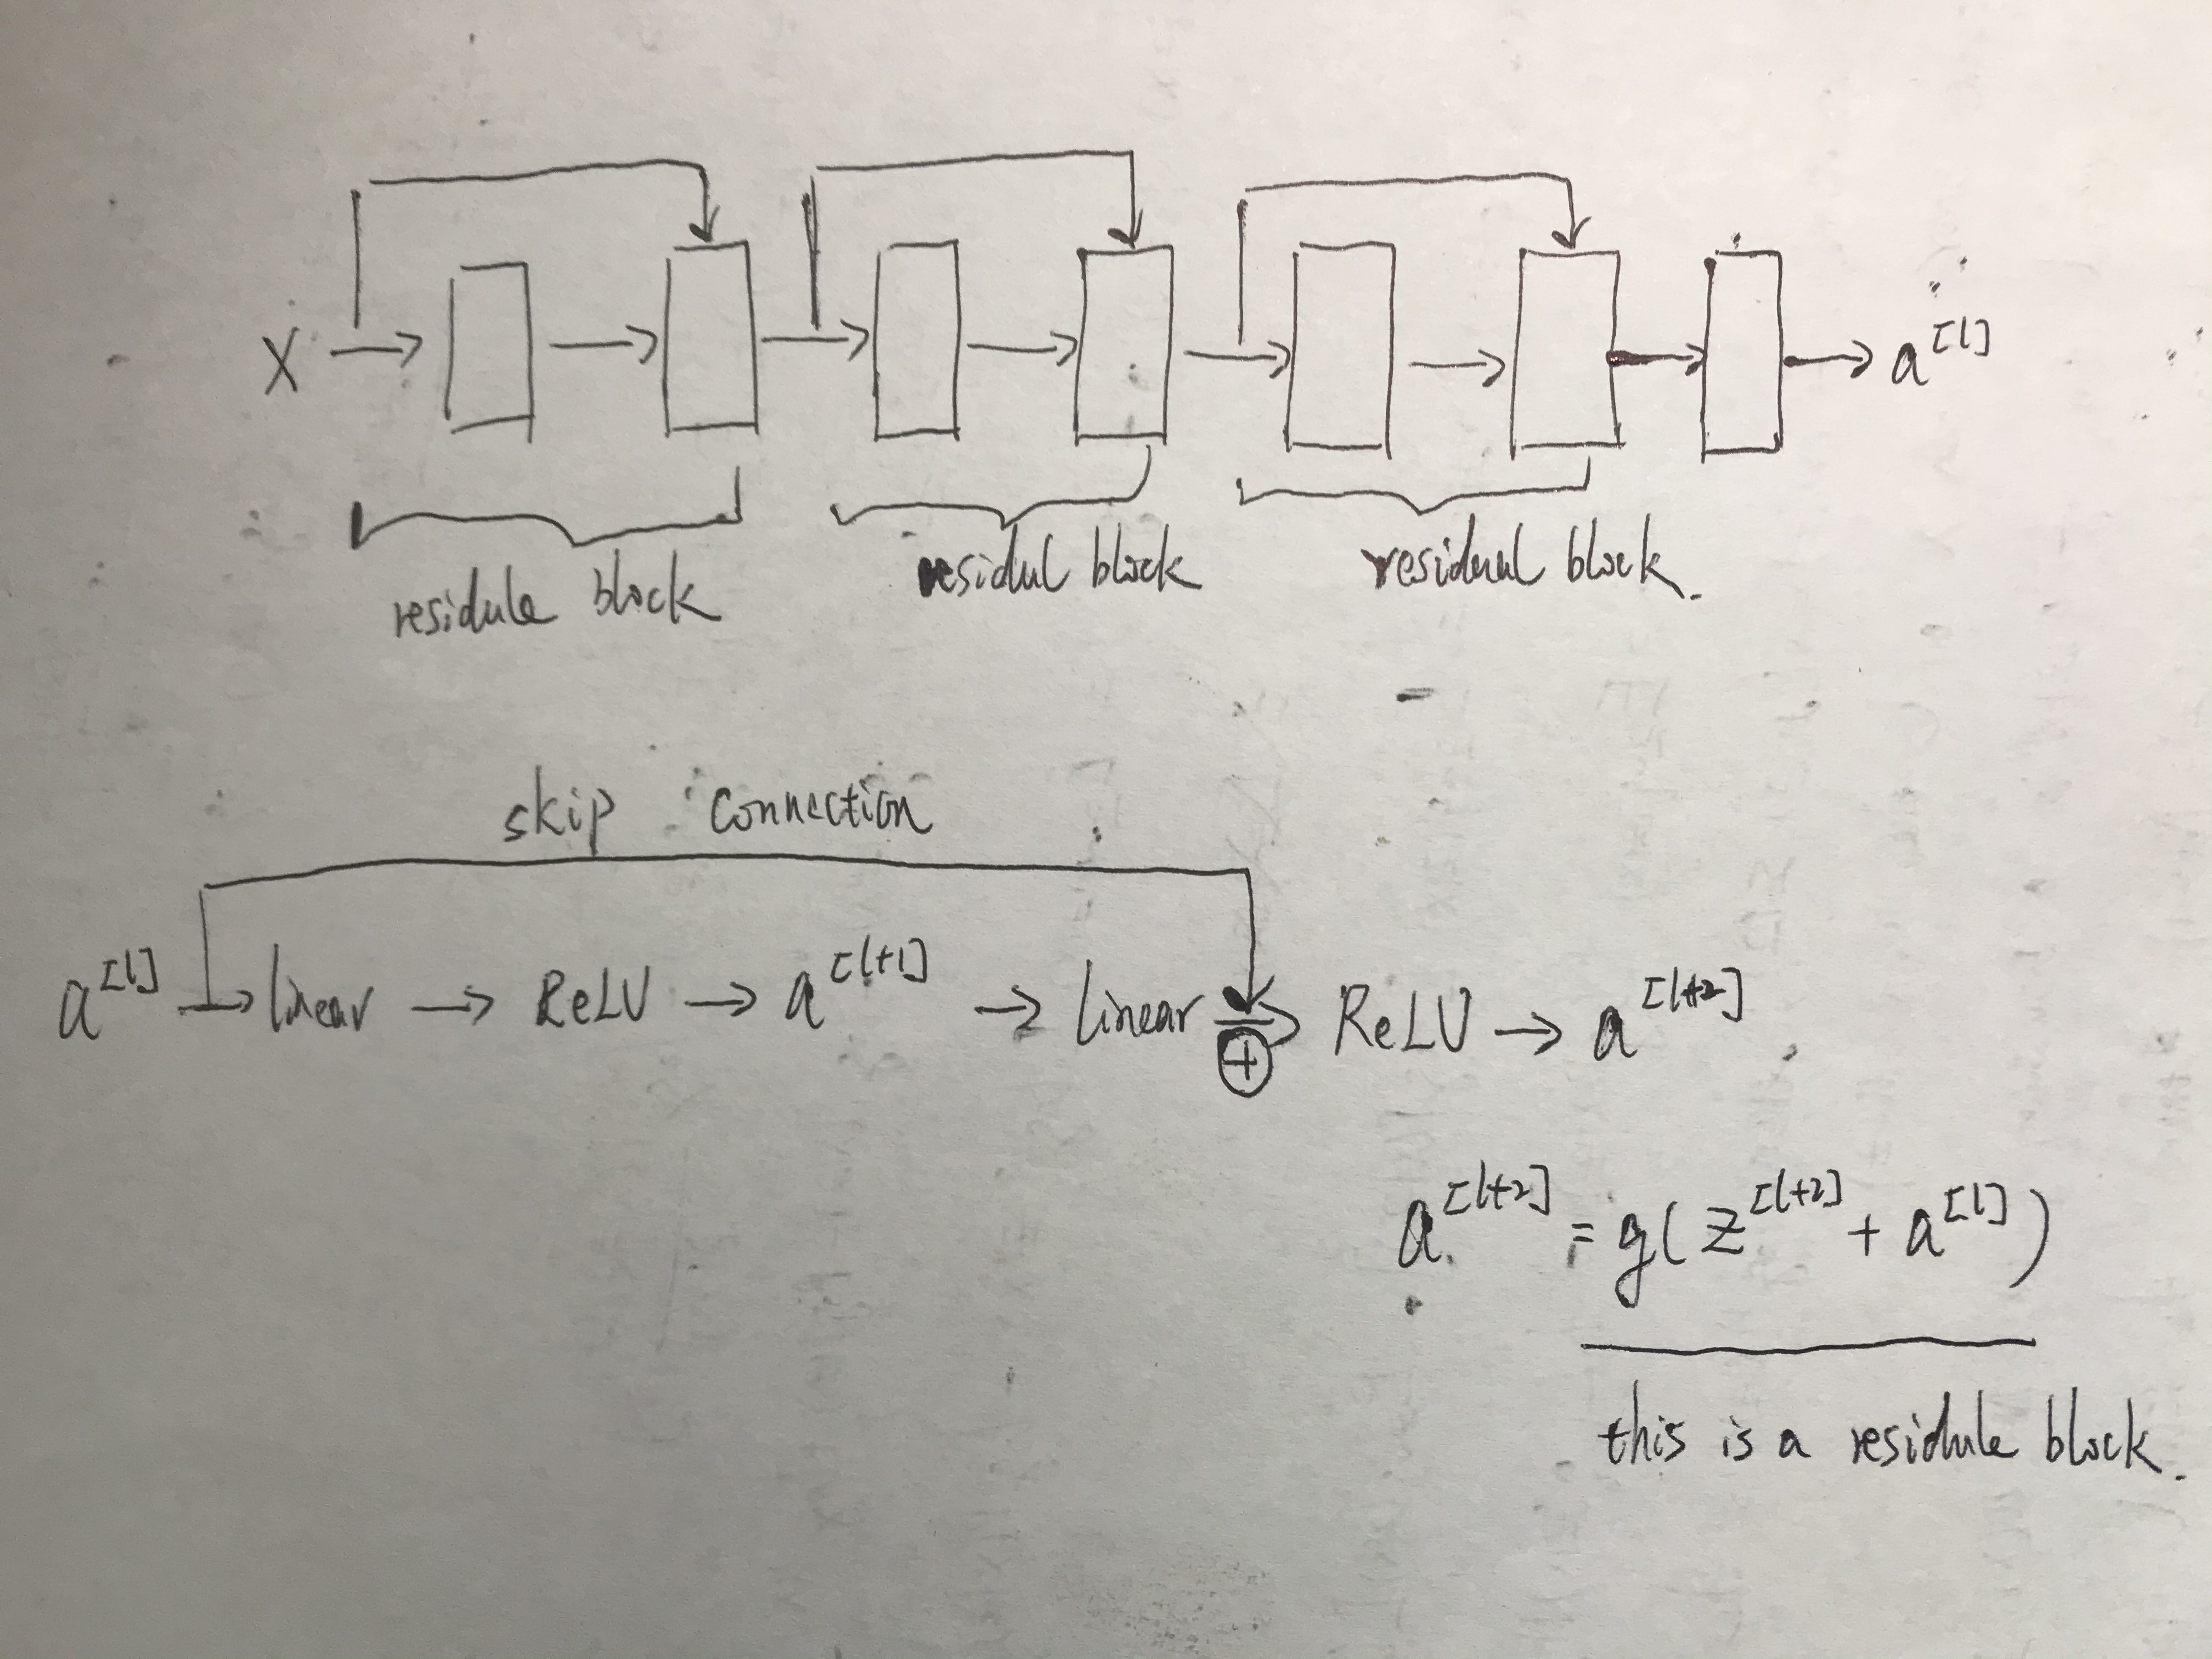 X → → → → → → → a^[l]
residule block residul block residual block.
skip connection
a^[l] → linear → ReLU → a^[l+1] → linear ⊕→ ReLU → a^[l+2]
a^[l+2] = g(z^[l+2] + a^[l])
this is a residule block.